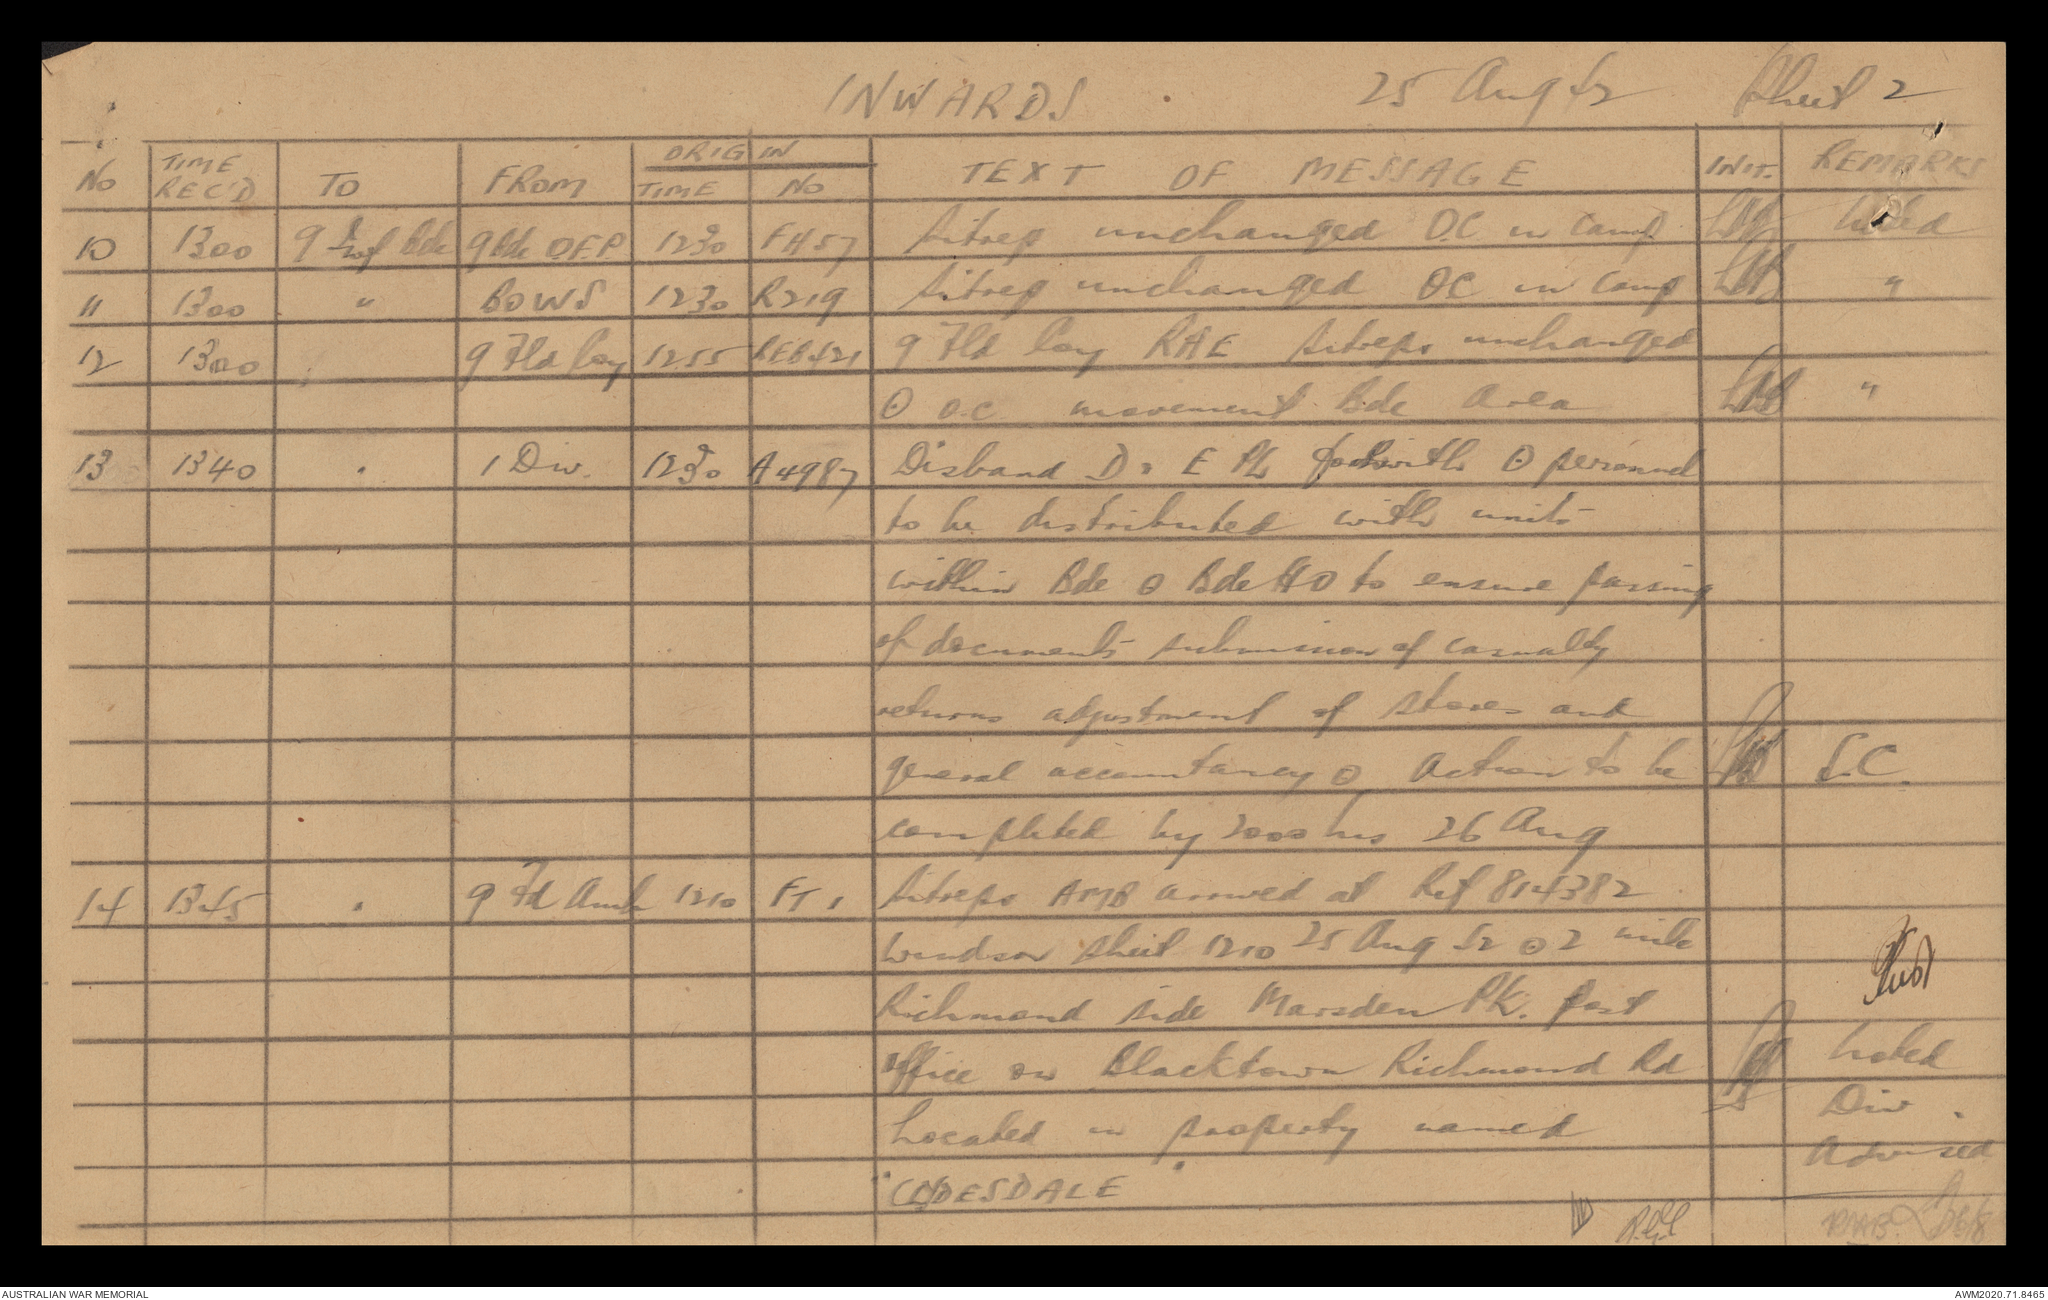 INWARDS 25 Aug 42 Sheet 2
No TIME REC'D TO FROM ORIGIN TIME No TEXT OF MESSAGE INIT. REMARKS
10 1300 9 Aust Inf Bde 9 Bde DEP 1230 FH57 Sitrep unchanged OC in camp Noted
11 1300 " BOWS 1230 R219 Sitrep unchanged OC in camp "
12 1300 9 Fld Coy 1255 9 Fld Coy RAE sitreps unchanged
O.C. movement Bde Area "
13 1340 " 1 Div. 1230 A4987 Disband D & E Pl forthwith personnel
to be distributed with units
within Bde Bde HQ to ensure passing
of documents submission of casualty
returns adjustment of stores and
general accountancy Action to be S.C.
completed by 2000 hrs 26 Aug
14 1345 " 9 Fd Amb 1210 FT1 Sitreps AMB arrived at Ref 814382
Windsor sheet 1210 25 Aug 42 2 mile
Richmond side Marsden PK. post
office on Blacktown Richmond Rd Noted
Located in property named Div.
"CLYDESDALE" Advised
AUSTRALIAN WAR MEMORIAL AWM2020.71.8465